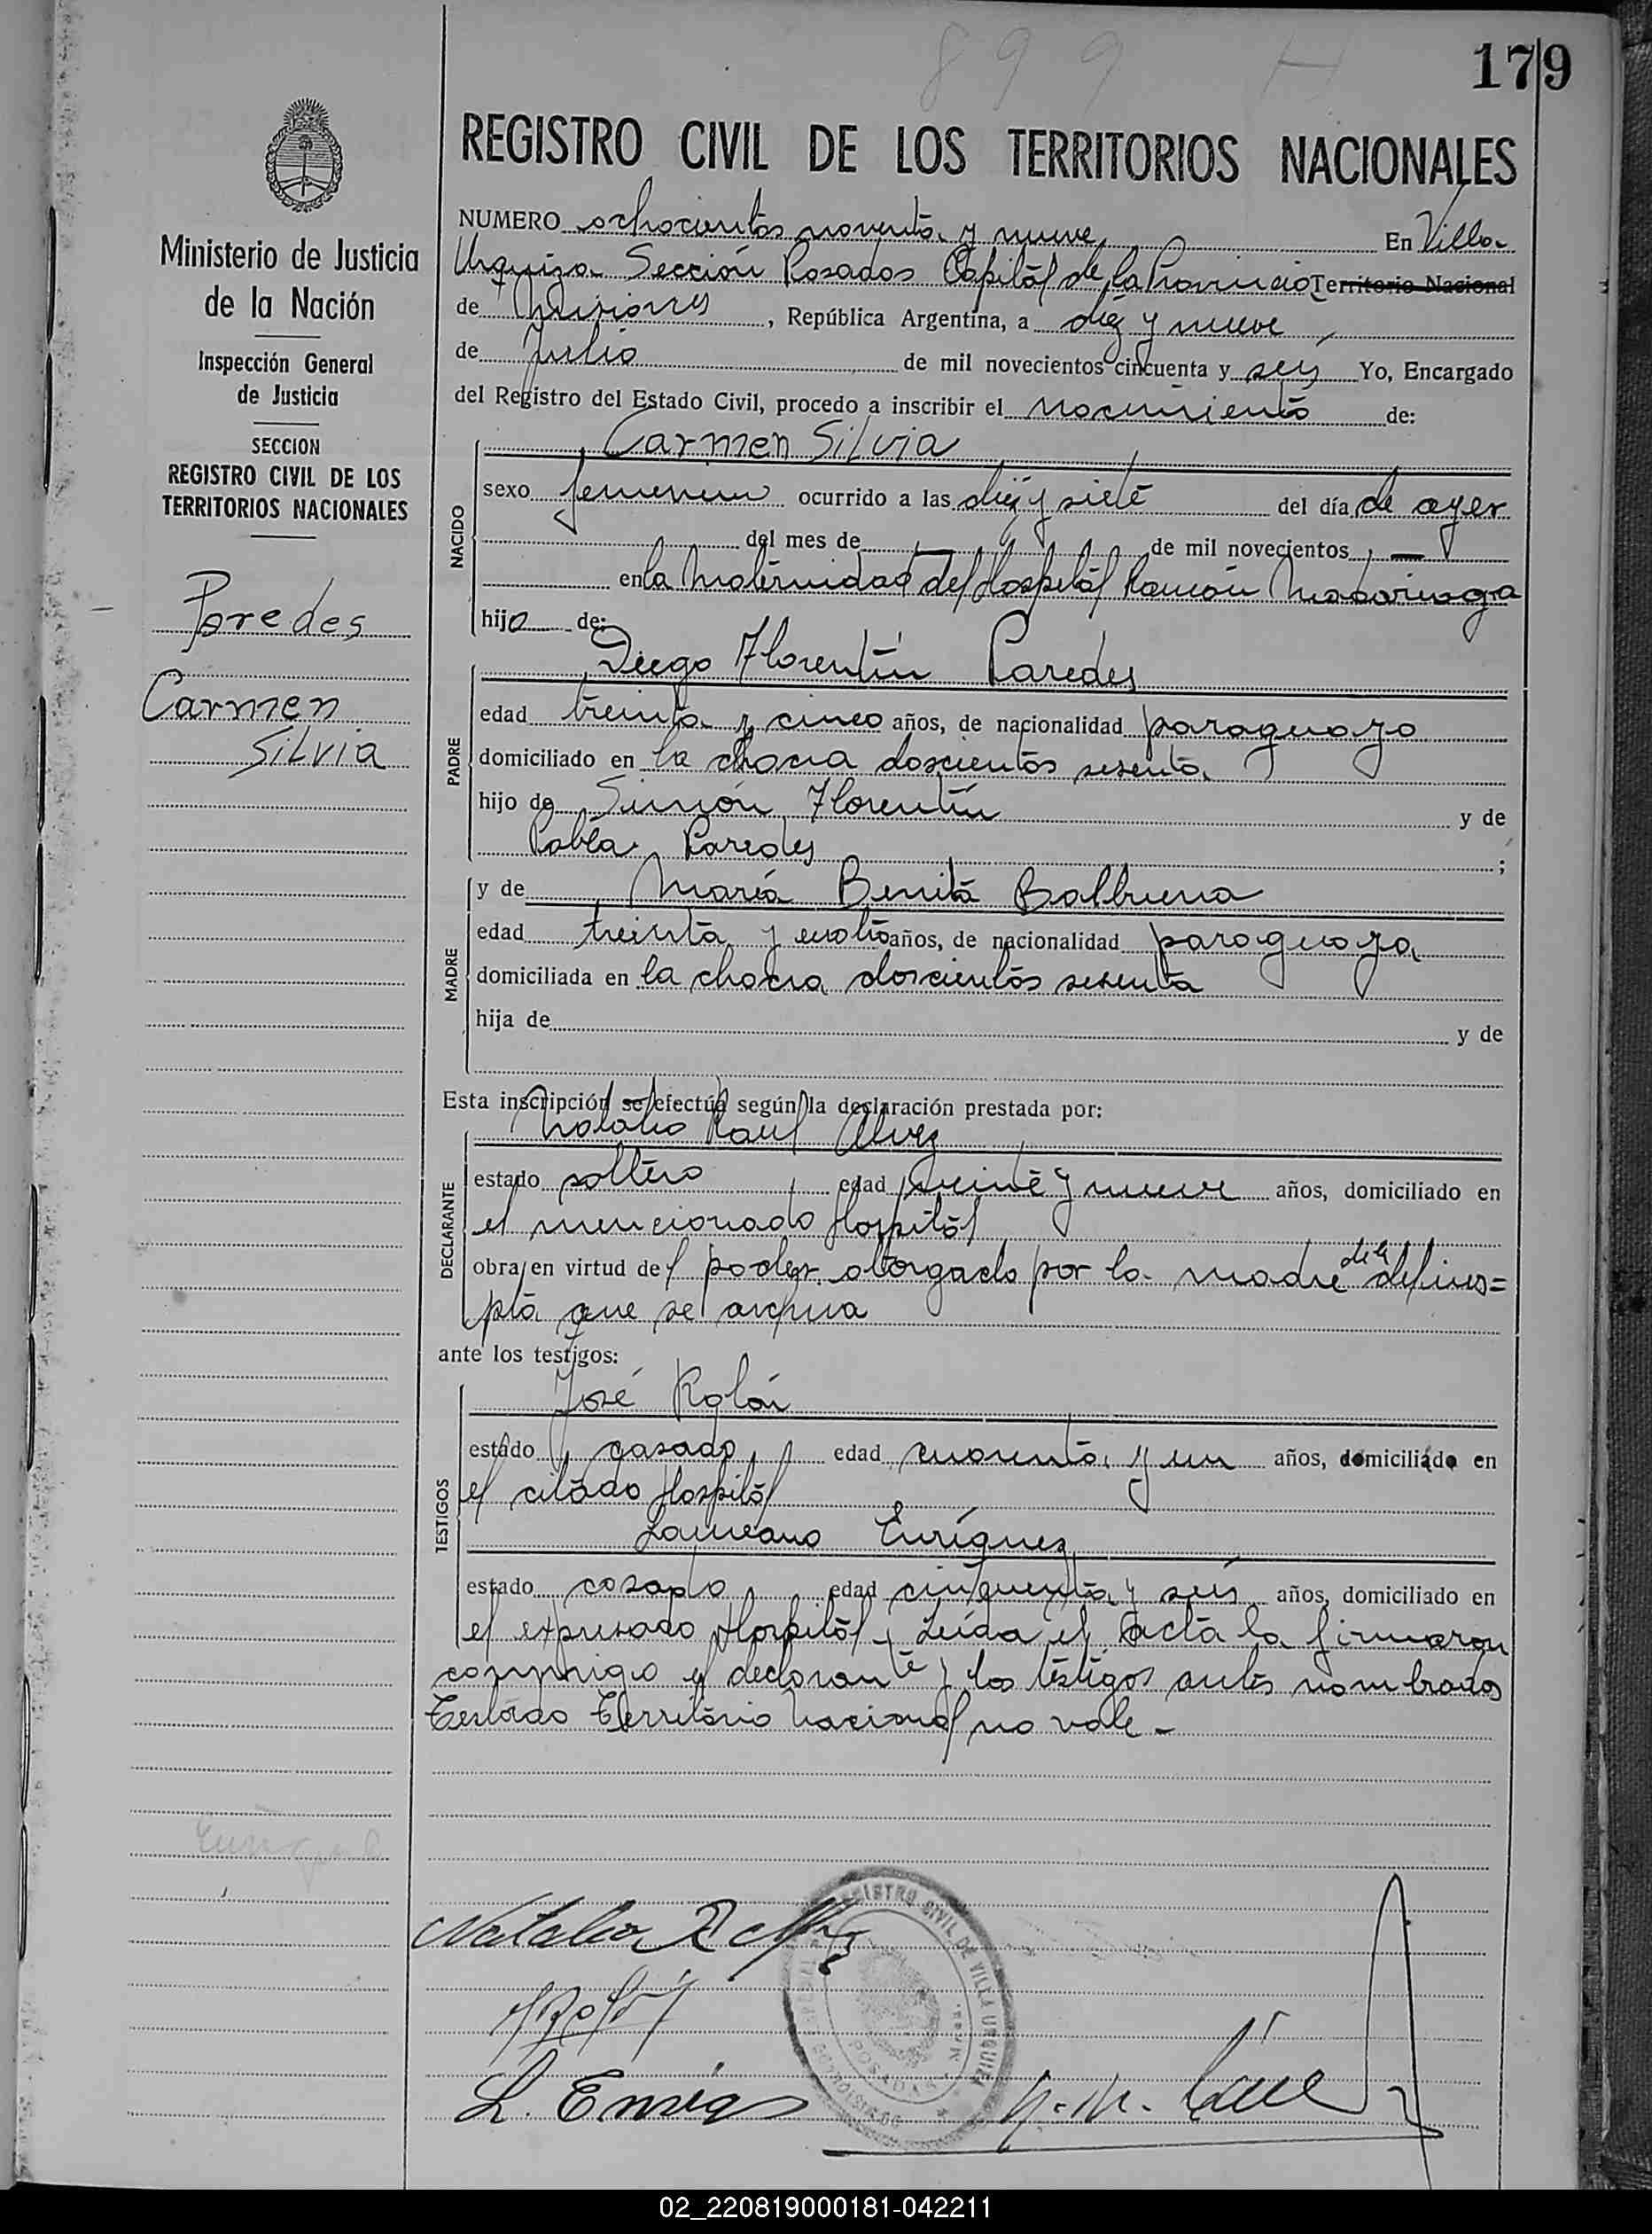 899 H
179
REGISTRO CIVIL DE LOS TERRITORIOS NACIONALES
Ministerio de Justicia
de la Nación
Inspección General
de Justicia
SECCION
REGISTRO CIVIL DE LOS
TERRITORIOS NACIONALES
Paredes
Carmen
Silvia
NUMERO ochocientos noventa y nueve En Villa
Urquiza Sección Posadas Capital de la Provincia Territorio Nacional
de Misiones, República Argentina, a diez y nueve
de Julio de mil novecientos cincuenta y seis Yo, Encargado
del Registro del Estado Civil, procedo a inscribir el nacimiento de:
Carmen Silvia
NACIDO
sexo femenino ocurrido a las diez y siete del día de ayer
del mes de de mil novecientos
en la Maternidad del Hospital Ramón Madariaga
hija de:
Diego Florentín Paredes
PADRE
edad treinta y cinco años, de nacionalidad paraguayo
domiciliado en la chacra doscientos sesenta
hijo de Simón Florentín y de
Pabla Paredes ;
y de María Benita Balbuena
MADRE
edad treinta y cuatro años, de nacionalidad paraguaya
domiciliada en la chacra doscientos sesenta
hija de y de
Esta inscripción se efectúa según la declaración prestada por:
Natalio Raul Alvez
DECLARANTE
estado soltero edad veinte y nueve años, domiciliado en
el mencionado Hospital
obra en virtud del poder otorgado por la madre de la
que se archiva
ante los testigos:
José Rolón
TESTIGOS
estado casado edad cuarenta y un años, domiciliado en
el citado Hospital
Laureano Enríquez
estado casado edad cincuenta y seis años, domiciliado en
el expresado Hospital Leída el acta la firmaron
conmigo el declarante y los testigos antes nombrados
Testado Territorio Nacional no vale -
Natalio R Alvez
L. Enriq
REGISTRO CIVIL DE VILLA URQUIZA
POSADAS
02_220819000181-042211